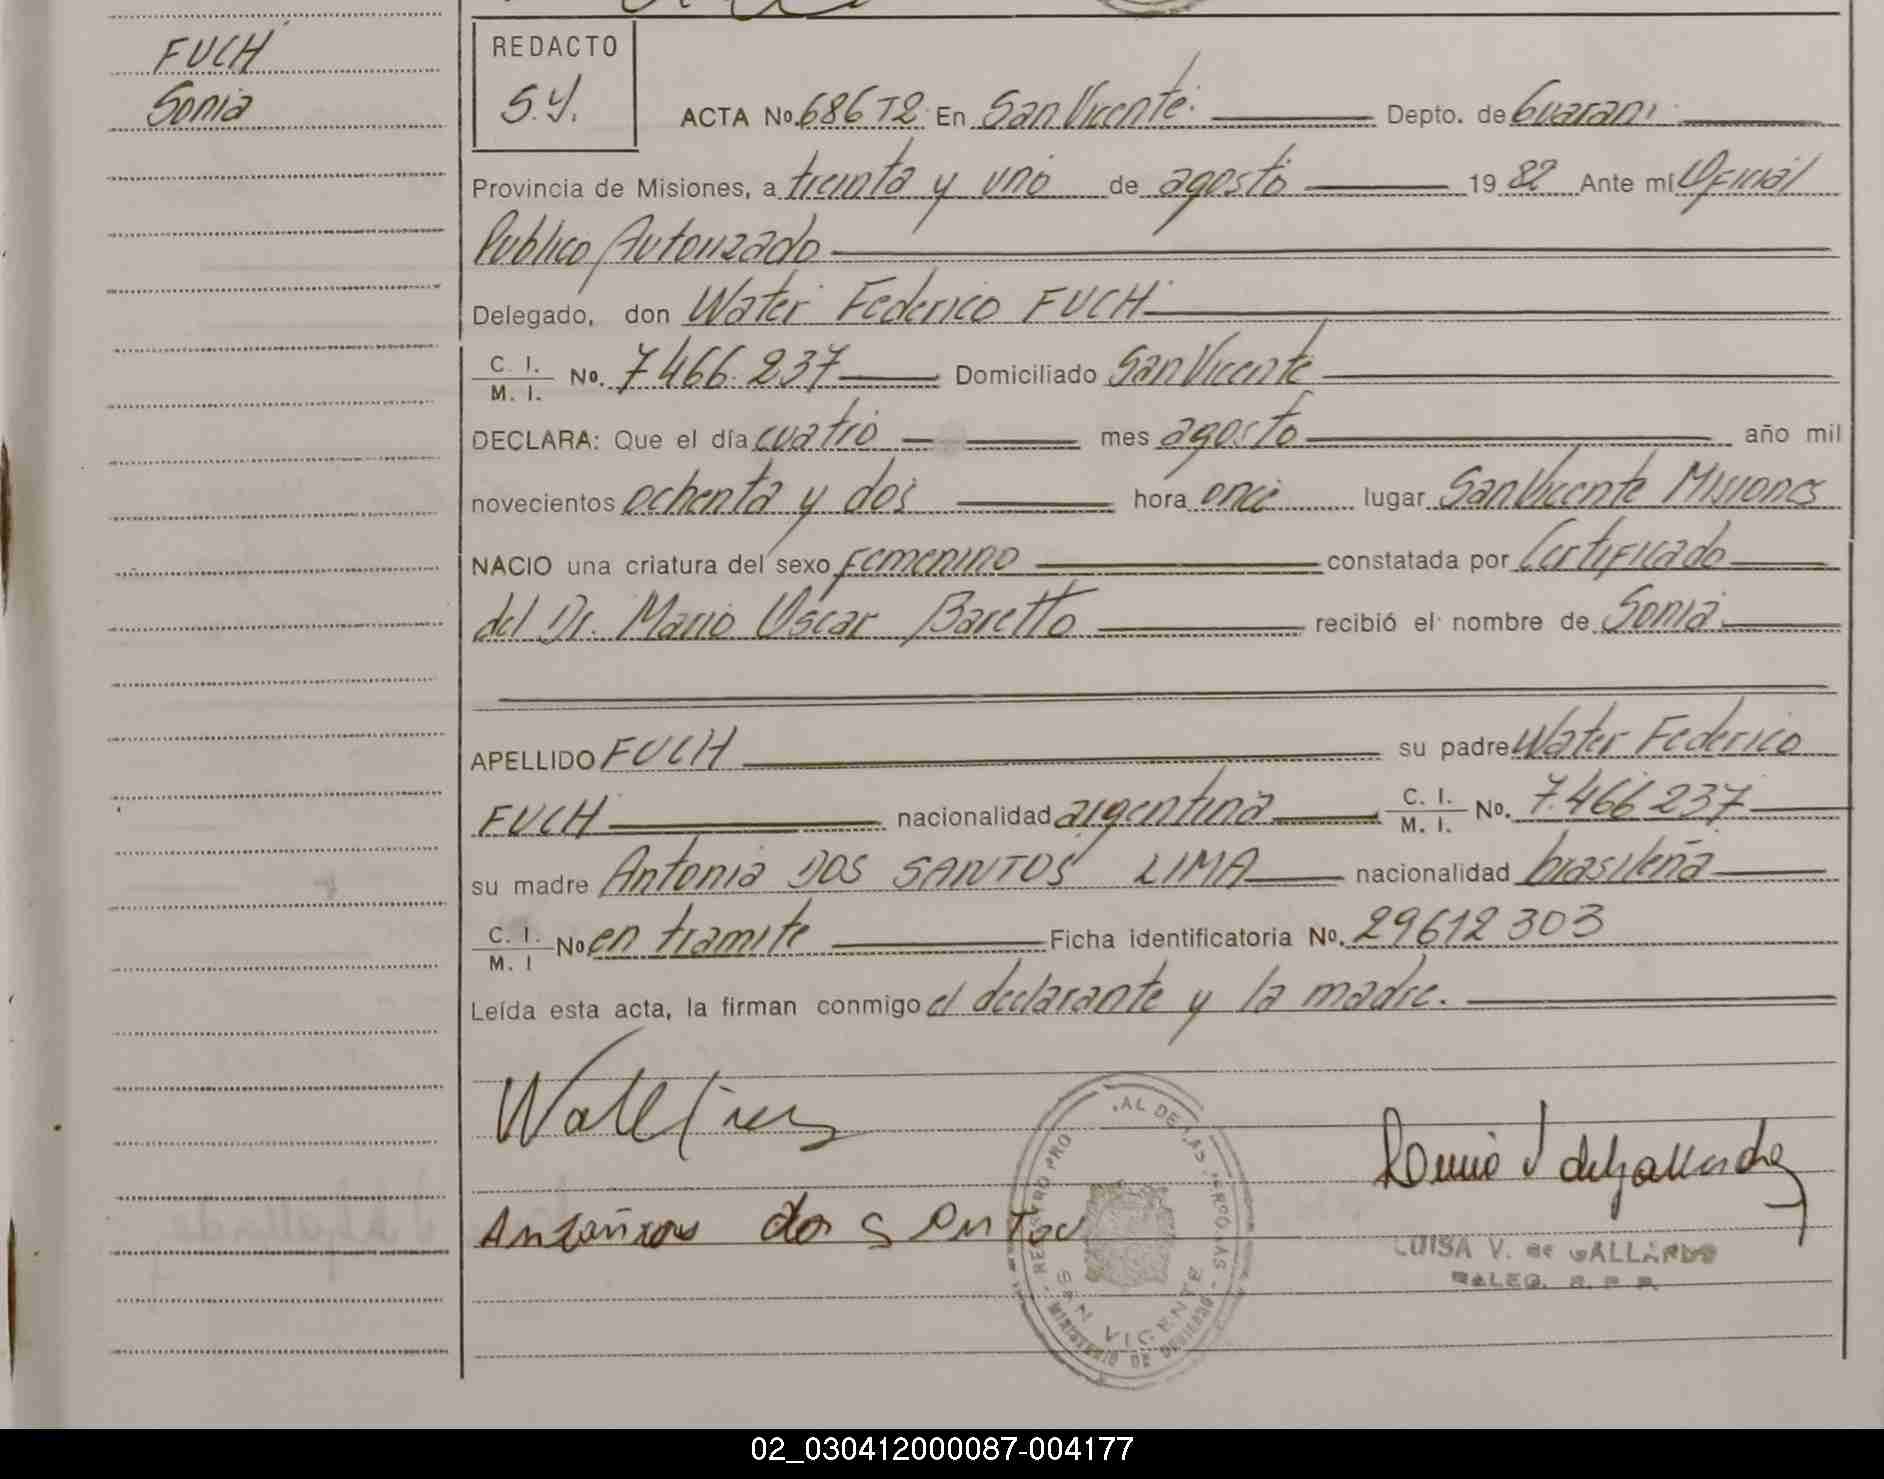 FUCH
Sonia
REDACTO
S.Y.
ACTA No. 686 T2 En San Vicente. Depto. de Guaraní
Provincia de Misiones, a treinta y uno de agosto 19 82 Ante mí Oficial
Publico Autorizado
Delegado, don Water Federico FUCH
C. I.
M. I. No. 7.466.237 Domiciliado San Vicente
DECLARA: Que el día cuatro mes agosto año mil
novecientos ochenta y dos hora once lugar San Vicente Misiones
NACIO una criatura del sexo femenino constatada por Certificado
del Dr. Mario Oscar Baretto recibió el nombre de Sonia
APELLIDO FUCH su padre Water Federico
FUCH nacionalidad argentina C. I.
M. I. No. 7.466 237
su madre Antonia DOS SANTOS LIMA nacionalidad brasileña
C. I.
M. I No en tramite Ficha identificatoria No. 29612 303
Leída esta acta, la firman conmigo el declarante y la madre.
dos
REGISTRO PRO AL DE LAS PERSONAS
SAN VICENTE
MINISTERIO DE GOBIERNO
LUISA V. de GALLARDO
DELEG. R. P. P.
02_030412000087-004177